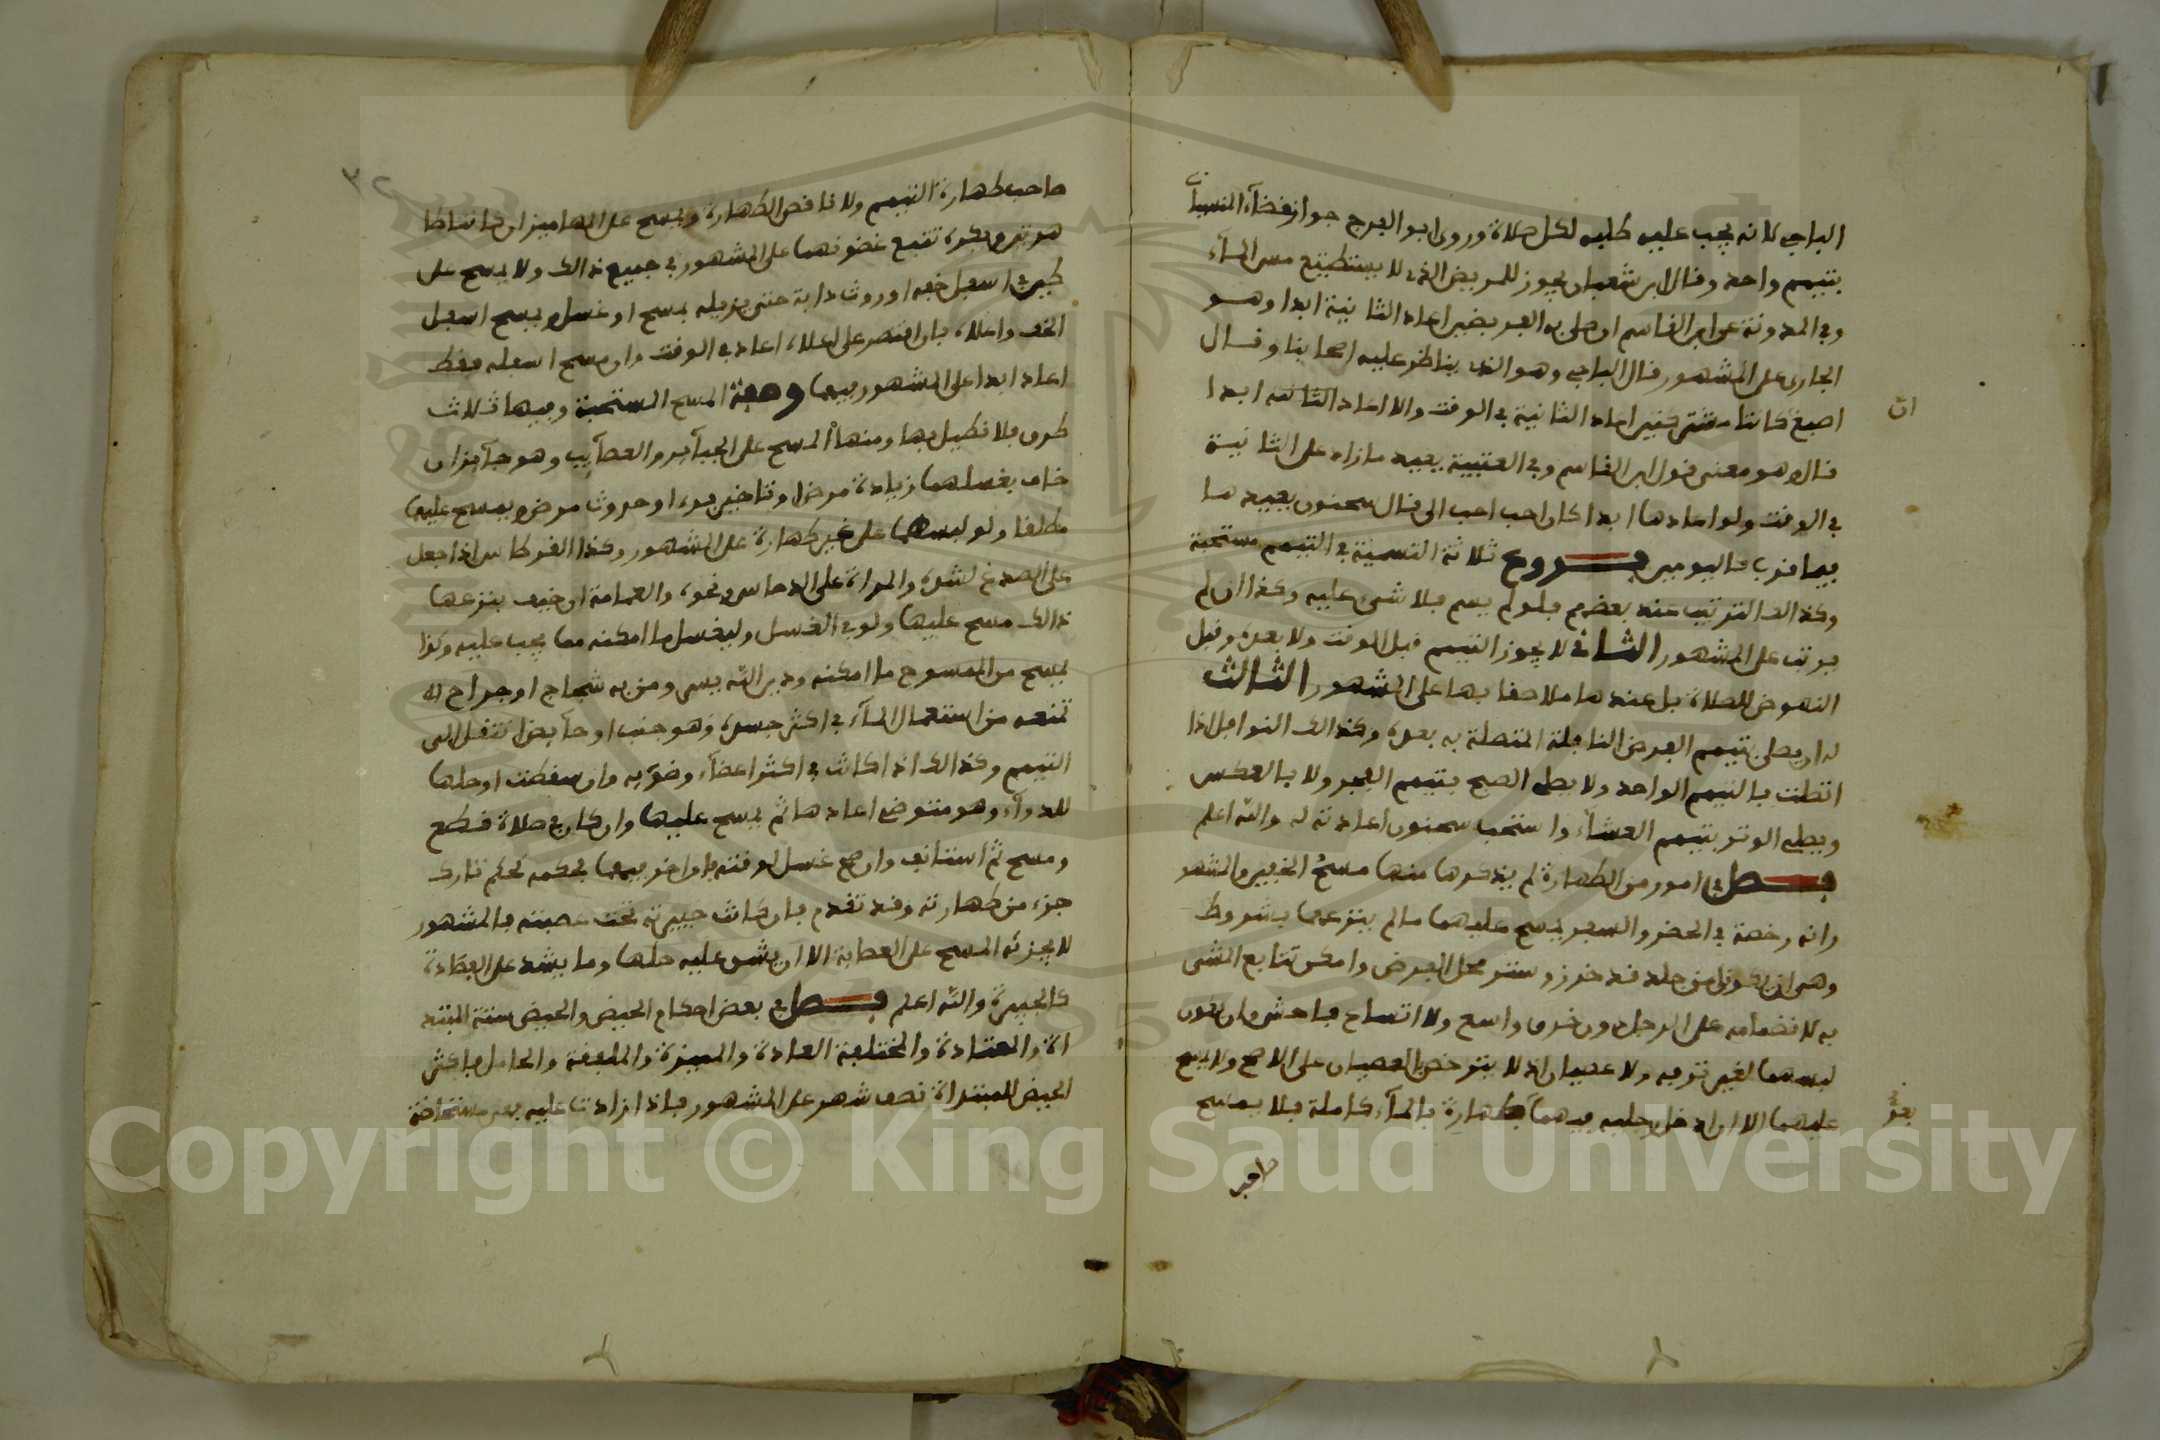 الباجي لانه يجب عليه طلبه لكل صلاة وروى ابو الفرج جواز قضاء المنسيات
بتيمم واحد وقال ابن شعبان يجوز للمريض الذي لا يستطيع مس الماء
وفي المدونة عن ابن القاسم ان صلى به الفريضتين اعاد الثانية ابدا وهو
الجاري على المشهور قال الباجي وهو الذي يناظر عليه اصحابنا وقال
اصبغ كانتا مشتركتين اعاد الثانية في الوقت والا اعاد الثانية ابدا
ان
قال وهو معنى قول ابن القاسم وفي العتبية يعيد ما زاد على الثانية
في الوقت ولو اعادها ابدا كان احب الي قال سحنون يعيد ما
فيما قرب كاليومين فروع ثلاثة التسمية في التيمم مستحبة
وكذالك الترتيب عند بعضهم فلو لم يسم فلا شيء عليه وكذا ان لم
يرتب على المشهور الثاني لا يجوز التيمم قبل الوقت ولا بعده وقبل
النهوض للصلاة بل عندها ملاصقا بها على المشهور الثالث
له ان يصلي بتيمم الفرض النافلة المتصلة به بعده وكذالك النوافل اذا
اتصلت بالتيمم الواحد ولا يصلي الصبح بتيمم الفجر ولا بالعكس
ويصلي الوتر بتيمم العشاء واستحب سحنون اعادته له والله اعلم
فصل في امور من الطهارة لم يذكرها منها مسح الخفين والمشهور
وانه رخصة في الحضر والسفر يمسح عليهما ما لم ينزعهما بشروط
وهي ان يكونا من جلد قد خرز وستر محل الفرض وامكن تتابع المشي
به لا نضمامه على الرجل دون خرق واسع ولا اتساع فاحش وان يكون
لبسهما لغير ترفه ولا عصيان اذ لا يترخص بالعصيان على الاصح ولا يمسح
عليهما الا ان ادخل رجليه فيهما بطهارة بالماء كاملة فلا يمسح
صاحب طهارة التيمم ولا ناقص الطهارة ويمسح على المهاميز ان كانتا
هو ويكره تتبع غضونهما على المشهور في جميع ذالك ولا يمسح على
طين اسفل خفه او روث دابة حتى يزيله بمسح او غسل ويمسح اسفل
الخف واعلاه فان اقتصر على اعلاه اعاد في الوقت وان مسح اسفله فقط
اعاد ابدا على المشهور فيهما وصفة المسح المستحبة وفيها ثلاث
طرق فلا نطيل بها ومنها المسح على الجبائر والعصائب وهو جائز ان
خاف بغسلهما زيادة مرض او تاخير برء او حدوث مرض ويمسح عليهما
مطلقا ولو لبسهما على غير طهارة على المشهور وكذا القرطاس اذا جعل
على الصدغ لشده والمرارة على الدحاس ونحوه والعمامة ان خيف بنزعها
ذالك مسح عليها ولو في الغسل وليغسل ما امكنه مما يجب عليه وكذا
يمسح من الممسوح ما امكنه ودين الله يسر ومن به شجاج او جراح
تمنعه من استعمال الماء في اكثر جسده وهو جنب او حائض انتقل الى
التيمم وكذالك اذا كانت في اكثر اعضاء وضوئه وان سقطت او حلها
للدواء وهو متوضئ اعادها ثم يمسح عليها وان كان في صلاة قطع
ومسح ثم استانف وان صح غسل لوقته فان اخر فيهما بحكمه حكم تارك
جزء من طهارته وقد تقدم فان كانت جبيرته تحت عصبته فالمشهور
لا يجزئه المسح على العصابة الا ان يشق عليه حلها وما يشد على الفصادة
كالجبيرة والله اعلم فصل في بعض احكام الحيض والحيض ستة المبتد
اة والمعتادة والمختلفة العادة والمميزة والملفقة والحامل فاكثر
الحيض للمبتداة نصف شهر على المشهور فاذا زادت عليه فهي مستحاضة